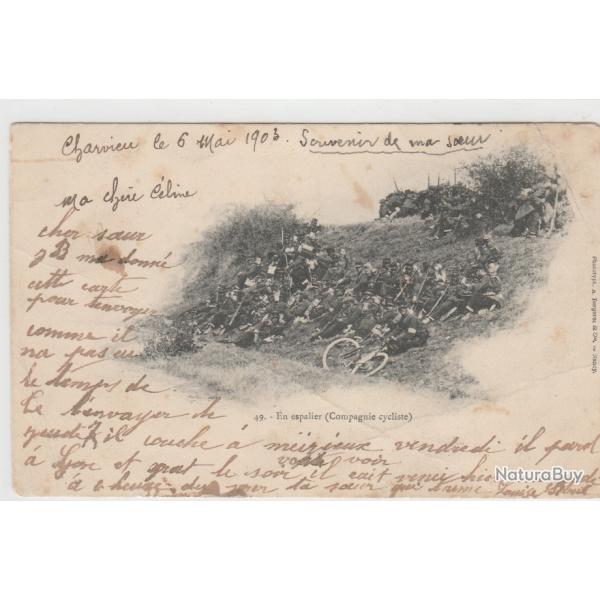 Charvieu le 6 Mai 1903. Souvenir de ma sœur
Ma chère Céline
cher sœur
JB ma donné
cette carte
pour tenvoyer
comme il
na pas eu
le temps de
te lenvoyer de
jeudi il couche à meizieux vendredi il part
à Lyon et le soir il voir
à heure du soir ta sœur qui t'aime
49. - En espalier (Compagnie cycliste)
Phototypie A. Bergeret & Cie, - Nancy.
NaturaBuy